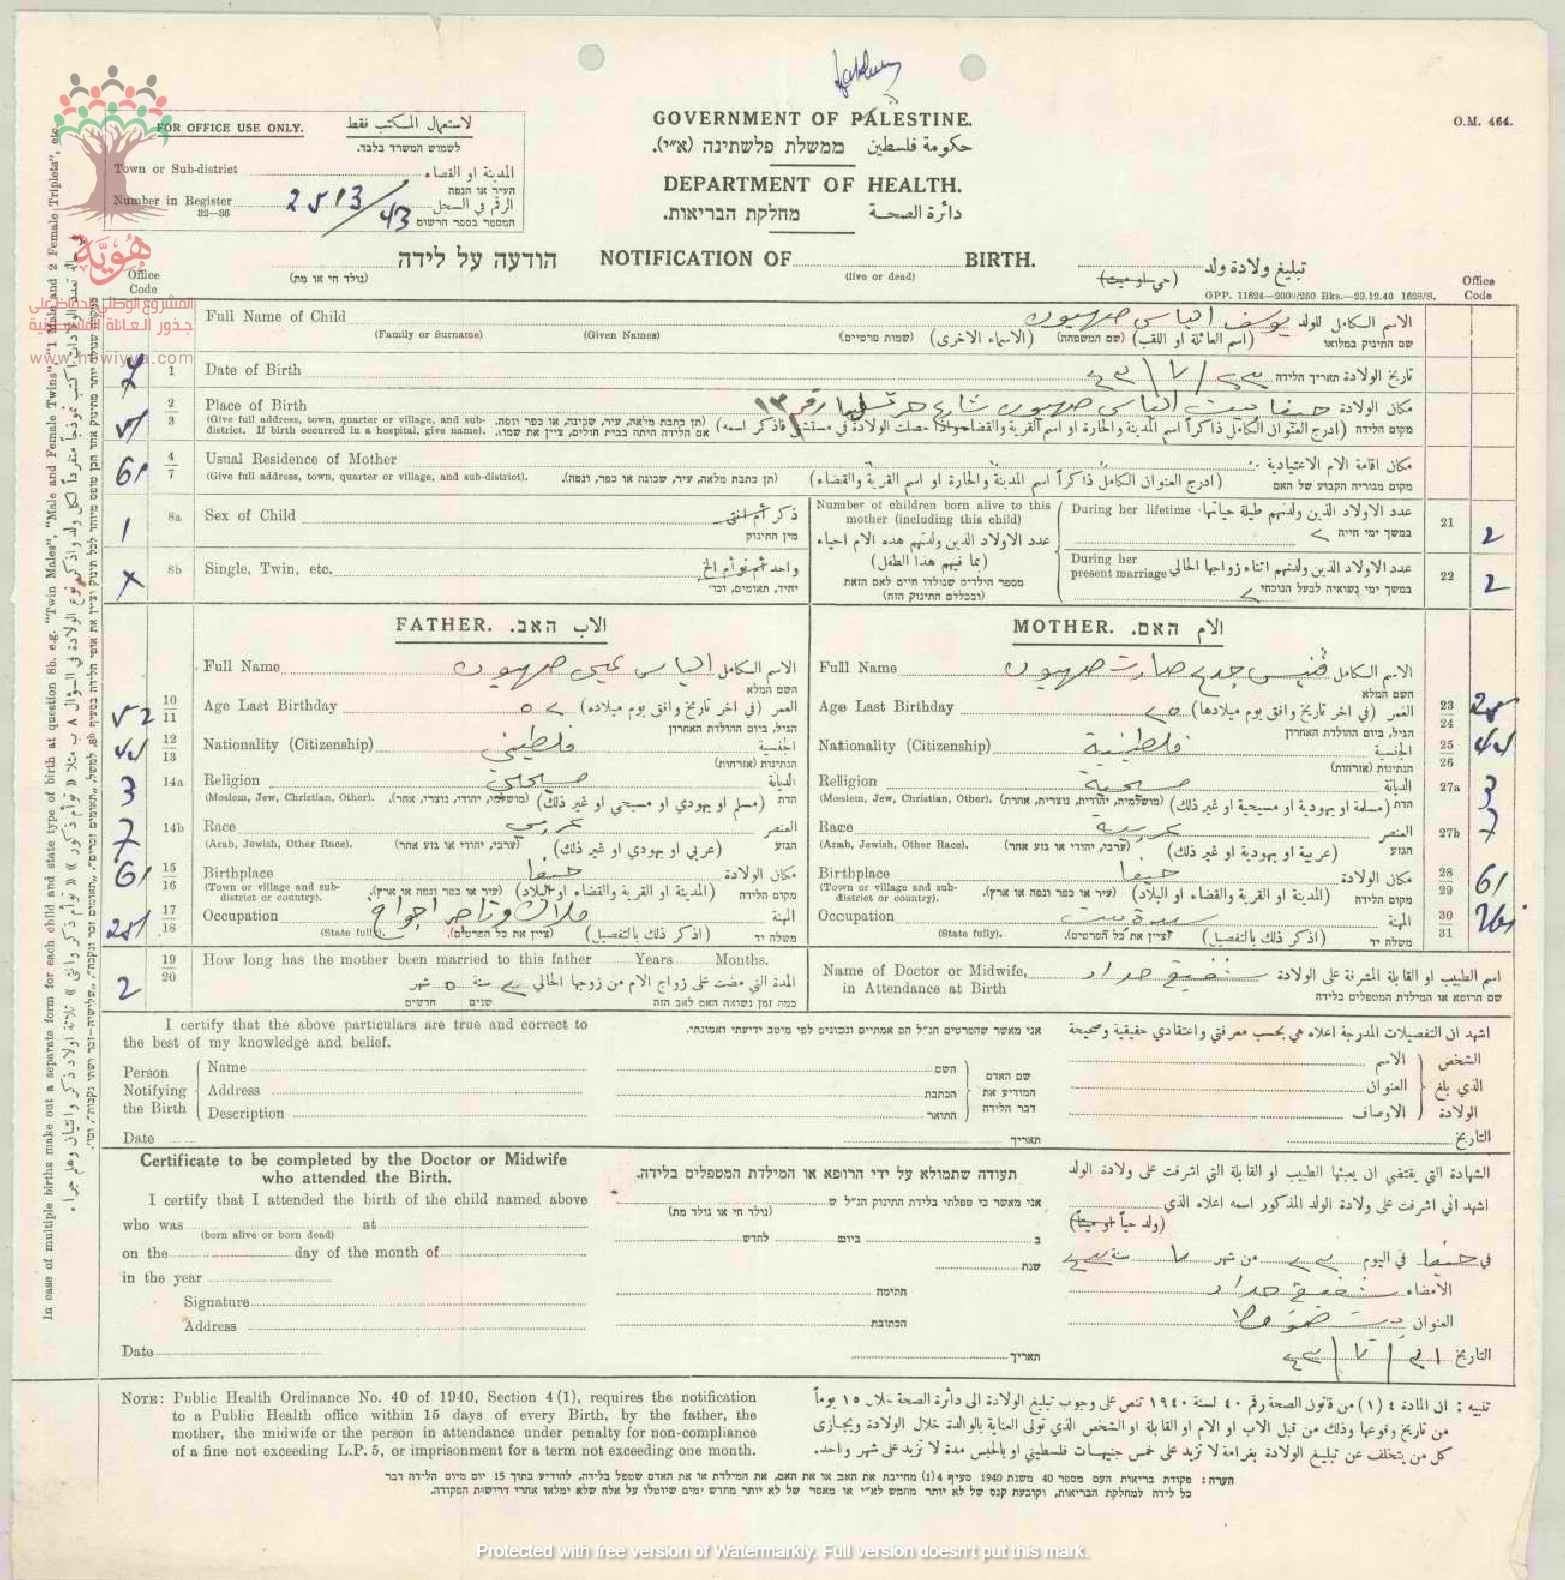 O.M. 464.
FOR OFFICE USE ONLY. لاستعمال المكتب فقط
לשמוש המשרד בלבד.
Town or Sub-district المدينة او القضاء
העיר או הנפה
Number in Register 2513/43 الرقم في السجل
32—36 המספר בספר הרשום
GOVERNMENT OF PALESTINE.
ממשלת פלשתינה (א״י). حكومة فلسطين
DEPARTMENT OF HEALTH.
מחלקת הבריאות. دائرة الصحة
הודעה על לידה NOTIFICATION OF BIRTH. تبليغ ولادة ولد
(נולד חי או מת) (live or dead) (حي او ميت)
GPP. 11824—2000/250 Bks.—29.12.40 1628/S.
Office Code
Office Code
هُويَّة
المشروع الوطني للحفاظ على
جذور العائلة الفلسطينية
www.howiyya.com
Full Name of Child يوسف الياس صهيون الاسم الكامل للولد
(Family or Surname) (Given Names) (שמות פרטיים) (الاسماء الاخرى) (שם המשפחה) (اسم العائلة او اللقب) שם התינוק במלואו
1 Date of Birth ٢٣/٧/٤٣ تاريخ الولادة תאריך הלידה
2/3 Place of Birth حيفا بيت الياس صهيون شارع رقم ١٣ مكان الولادة
(Give full address, town, quarter or village, and sub-district. If birth occurred in a hospital, give name). (תן כתבת מלאה, עיר, שכונה, או כפר ונפה. אם הלידה היתה בבית חולים, ציין את שמו). (ادرج العنوان الكامل ذاكراً اسم المدينة والحارة او اسم القرية والقضاء واذا حصلت الولادة في مستشفى فاذكر اسمه) מקום הלידה
61 4/7 Usual Residence of Mother مكان اقامة الام الاعتيادية
(Give full address, town, quarter or village, and sub-district). (תן כתבת מלאה, עיר, שכונה או כפר, ונפה). (ادرج العنوان الكامل ذاكراً اسم المدينة والحارة او اسم القرية والقضاء) מקום מגוריה הקבוע של האם
1 8a Sex of Child ذكر أم انثى
מין התינוק
8b Single, Twin, etc. واحد أم توأم الخ
יחיד, תאומים, וכד׳
Number of children born alive to this mother (including this child)
عدد الاولاد الذين ولدتهم هذه الام احياء
(بما فيهم هذا الطفل)
מספר הילדים שנולדו חיים לאם הזאת
(ובכללם התינוק הזה)
During her lifetime عدد الاولاد الذين ولدتهم طيلة حياتها 21 2
במשך ימי חייה ٢
During her present marriage عدد الاولاد الذين ولدتهم اثناء زواجها الحالي 22 2
במשך ימי נשואיה לבעל הנוכחי ٢
FATHER. האב. الاب
Full Name الياس صهيون الاسم الكامل
השם המלא
52 10/11 Age Last Birthday ٥٢ العمر (في اخر تاريخ وافق يوم ميلاده)
הגיל, ביום ההולדת האחרון
12/13 Nationality (Citizenship) فلسطيني الجنسية
הנתינות (אזרחות)
3 14a Religion مسيحي الديانة
(Moslem, Jew, Christian, Other). (מושלמי, יהודי, נוצרי, אחר). (مسلم او يهودي او مسيحي او غير ذلك) הדת
7 14b Race عربي العنصر
(Arab, Jewish, Other Race). (ערבי, יהודי או גזע אחר) (عربي او يهودي او غير ذلك) הגזע
61 15/16 Birthplace حيفا مكان الولادة
(Town or village and sub-district or country). (עיר או כפר ונפה או ארץ). (المدينة او القرية والقضاء او البلاد) מקום הלידה
17/18 Occupation ملاك وتاجر المهنة
(State fully). (ציין את כל הפרטים). (اذكر ذلك بالتفصيل) משלח יד
2 19/20 How long has the mother been married to this father Years Months.
المدة التي مضت على زواج الام من زوجها الحالي سنة ٥ شهر
כמה זמן נשואה האם לאב הזה שנים חדשים
MOTHER. האם. الام
Full Name صهيون الاسم الكامل
השם המלא
Age Last Birthday ٢٥ العمر (في اخر تاريخ وافق يوم ميلادها) 23/24 25
הגיל, ביום ההולדת האחרון
Nationality (Citizenship) فلسطينية الجنسية 25/26
הנתינות (אזרחות)
Relligion مسيحية الديانة 27a 3
(Moslem, Jew, Christian, Other). (מושלמית, יהודית, נוצרית, אחרת) (مسلمة او يهودية او مسيحية او غير ذلك) הדת
Race عربية العنصر 27b 7
(Arab, Jewish, Other Race). (ערביה, יהודיה או גזע אחר) (عربية او يهودية او غير ذلك) הגזע
Birthplace حيفا مكان الولادة 28/29 61
(Town or village and sub-district or country). (עיר או כפר ונפה או ארץ). (المدينة او القرية والقضاء او البلاد) מקום הלידה
Occupation سيدة بيت المهنة 30/31
(State fully). (ציין את כל הפרטים). (اذكر ذلك بالتفصيل) משלח יד
Name of Doctor or Midwife, شفيقة حداد اسم الطبيب او القابلة المشرفة على الولادة
in Attendance at Birth שם הרופא או המילדת המטפלים בלידה
I certify that the above particulars are true and correct to the best of my knowledge and belief.
אני מאשר שהפרטים הנ״ל הם אמתיים ונכונים למי מיטב ידיעתי ואמונתי.
اشهد ان التفصيلات المدرجة اعلاه هي بحسب معرفتي واعتقادي حقيقية وصحيحة
Person Notifying the Birth
Name השם الاسم
Address הכתבת العنوان
Description התואר الاوصاف
שם האדם המודיע את דבר הלידה
الشخص الذي بلغ الولادة
Date תאריך التاريخ
Certificate to be completed by the Doctor or Midwife who attended the Birth.
תעודה שתמולא על ידי הרופא או המילדת המטפלים בלידה.
الشهادة التي يقتضي ان يعبئها الطبيب او القابلة التي اشرفت على ولادة الولد
I certify that I attended the birth of the child named above
אני מאשר כי טפלתי בלידת התינוק הנ״ל ש
(נולד חי או נולד מת)
اشهد اني اشرفت على ولادة الولد المذكور اسمه اعلاه الذي
(ولد حياً او ميتاً)
who was at
(born alive or born dead)
on the day of the month of
ב ביום לחדש
في حيفا في اليوم ٢٣ من شهر ٧ سنة ٤٣
in the year שנת
Signature חתימה الامضاء شفيقة حداد
Address הכתובת العنوان
Date תאריך التاريخ ٣١/٧/٤٣
NOTE: Public Health Ordinance No. 40 of 1940, Section 4(1), requires the notification
to a Public Health office within 15 days of every Birth, by the father, the
mother, the midwife or the person in attendance under penalty for non-compliance
of a fine not exceeding L.P. 5, or imprisonment for a term not exceeding one month.
تنبيه : ان المادة ٤ (١) من قانون الصحة رقم ٤٠ لسنة ١٩٤٠ تنص على وجوب تبليغ الولادة الى دائرة الصحة خلال ١٥ يوماً
من تاريخ وقوعها وذلك من قبل الاب او الام او القابلة او الشخص الذي تولى العناية بالوالدة خلال الولادة ويجازى
كل من يتخلف عن تبليغ الولادة بغرامة لا تزيد على خمس جنيهات فلسطيني او بالحبس مدة لا تزيد على شهر واحد.
הערה: פקודת בריאות העם מספר 40 משנת 1940 סעיף 4(1) מחייבת את האב או את האם, את המילדת או את האדם שטפל בלידה, להודיע בתוך 15 יום מיום הלידה דבר
כל לידה למחלקת הבריאות, וקובעת קנס של לא יותר מחמש לא״י או מאסר של לא יותר מחדש ימים שיוטלו על אלה שלא ימלאו אחרי דרישות הפקודה.
In case of multiple births make out a separate form for each child and state type of birth at question 8b. e.g. "Twin Males", "Male and Female Twins", "1 Male and 2 Female Triplets", etc.
Protected with free version of Watermarkly. Full version doesn't put this mark.